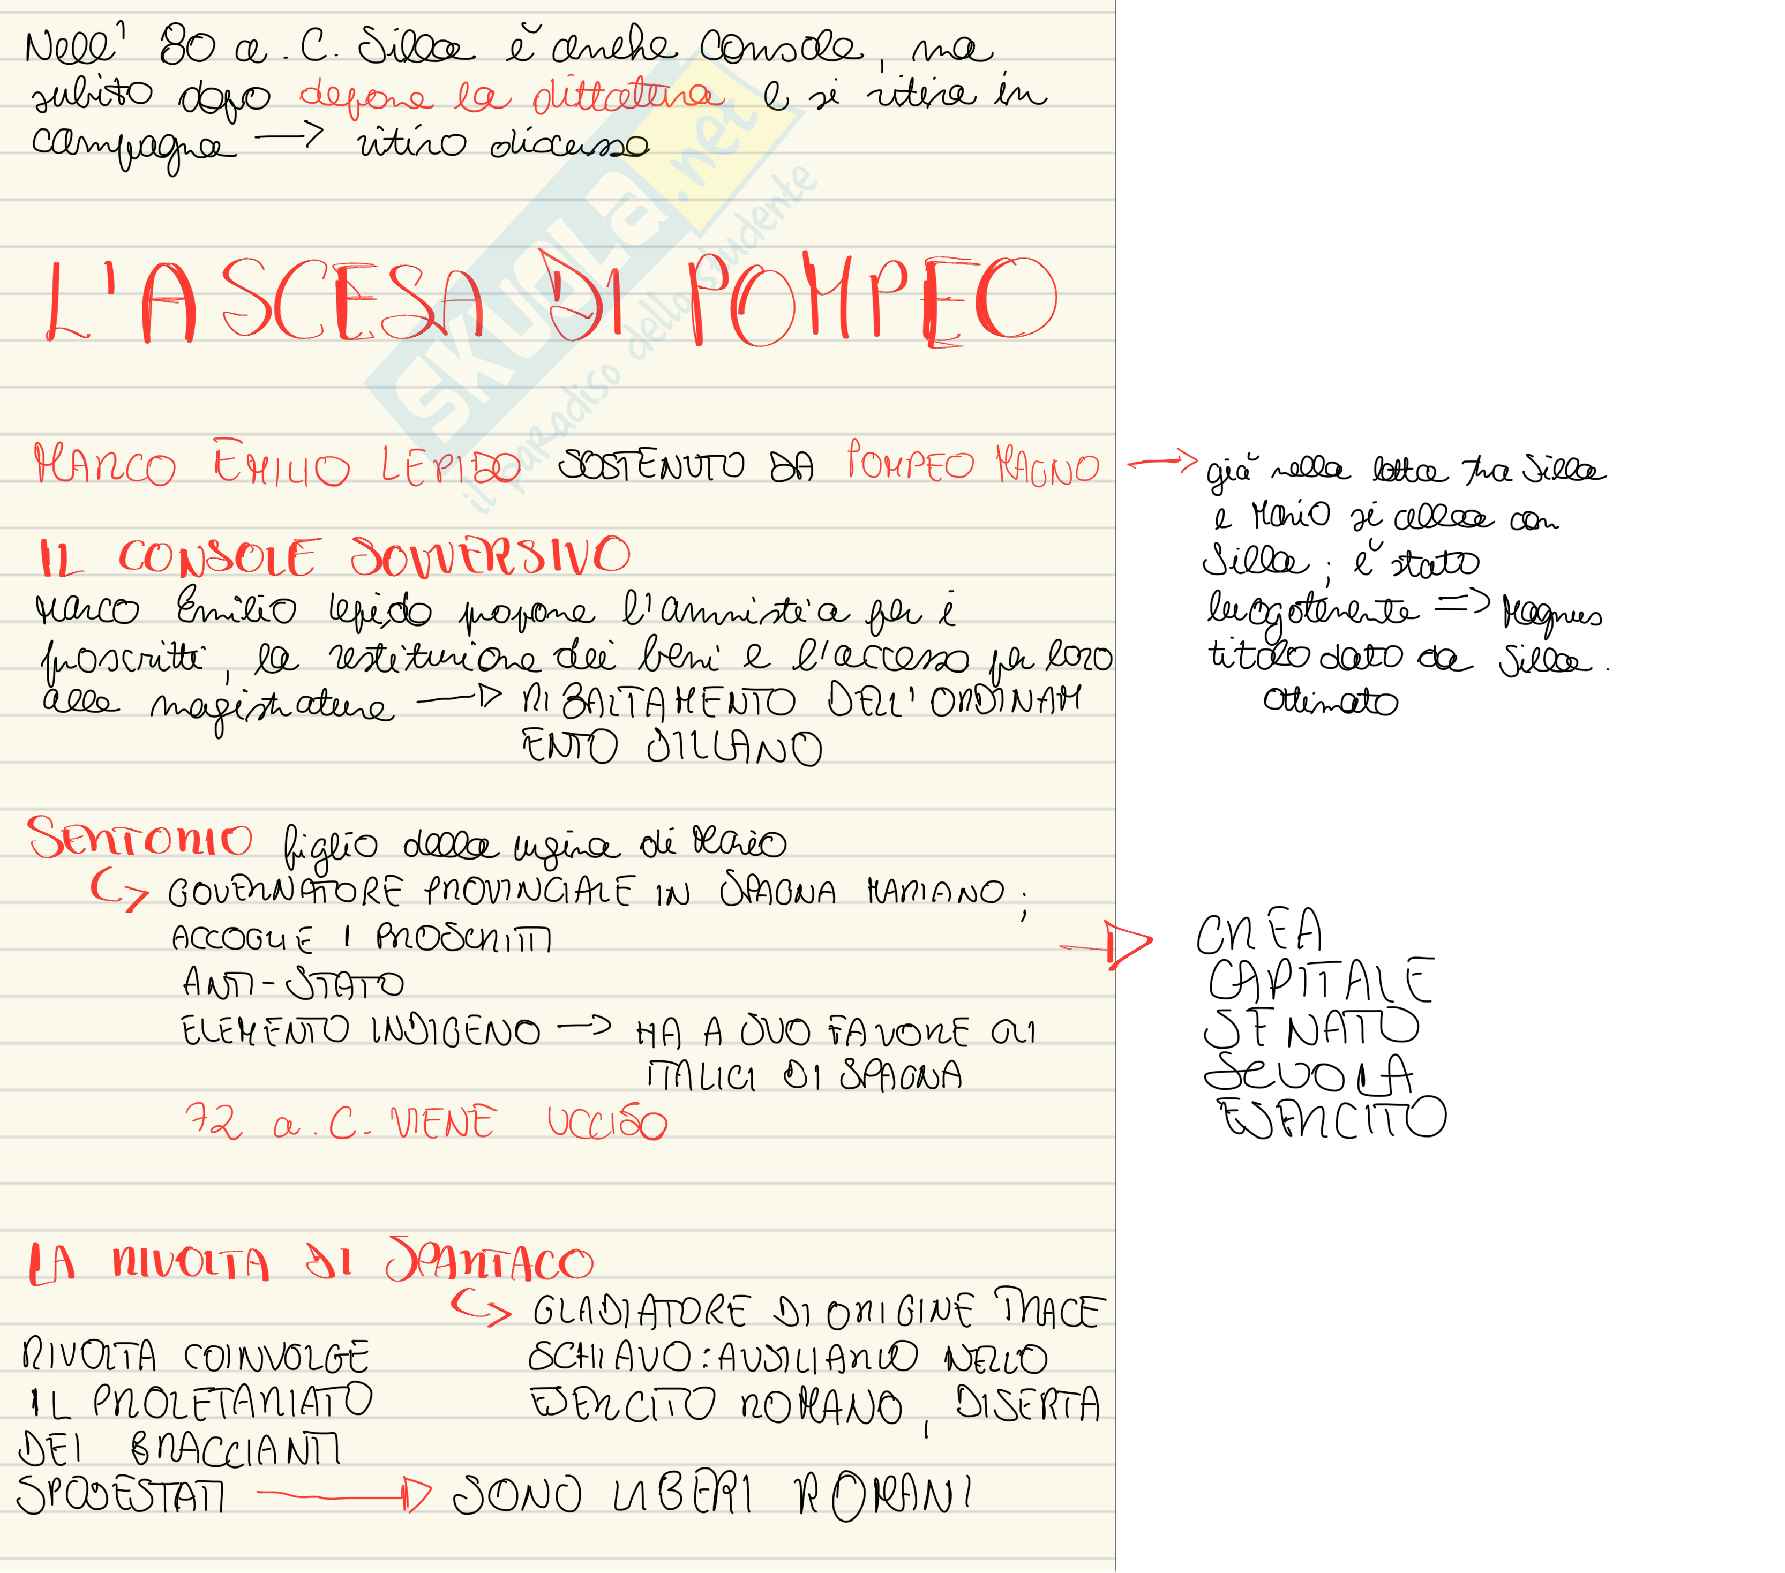 Nell' 80 a.C. Silla è anche console, ma
subito dopo depone la dittatura e si ritira in
campagna → ritiro discusso
L'ASCESA DI POMPEO
MARCO EMILIO LEPIDO SOSTENUTO DA POMPEO MAGNO →
già nella lotta tra Silla
e Mario si allea con
Silla; è stato
luogotenente => Magnus
titolo dato da Silla.
Ottimato
IL CONSOLE SOVVERSIVO
Marco Emilio Lepido propone l'amnistia per i
proscritti, la restituzione dei beni e l'accesso per loro
alle magistrature → RIBALTAMENTO DELL'ORDINAM
ENTO SILLANO
SERTORIO figlio della cugina di Mario
↪ GOVERNATORE PROVINCIALE IN SPAGNA MARIANO;
ACCOGLIE I PROSCRITTI
ANTI-STATO
ELEMENTO INDIGENO → HA A SUO FAVORE GLI
ITALICI DI SPAGNA
72 a.C. VIENE UCCISO
→ CREA
CAPITALE
SENATO
SCUOLA
ESERCITO
LA RIVOLTA DI SPARTACO
↪ GLADIATORE DI ORIGINE TRACE
SCHIAVO: AUSILIARIO NELLO
ESERCITO ROMANO, DISERTA
RIVOLTA COINVOLGE
IL PROLETARIATO
DEI BRACCIANTI
SPODESTATI → SONO LIBERI ROMANI
SKUOLA.net
il paradiso dello studente